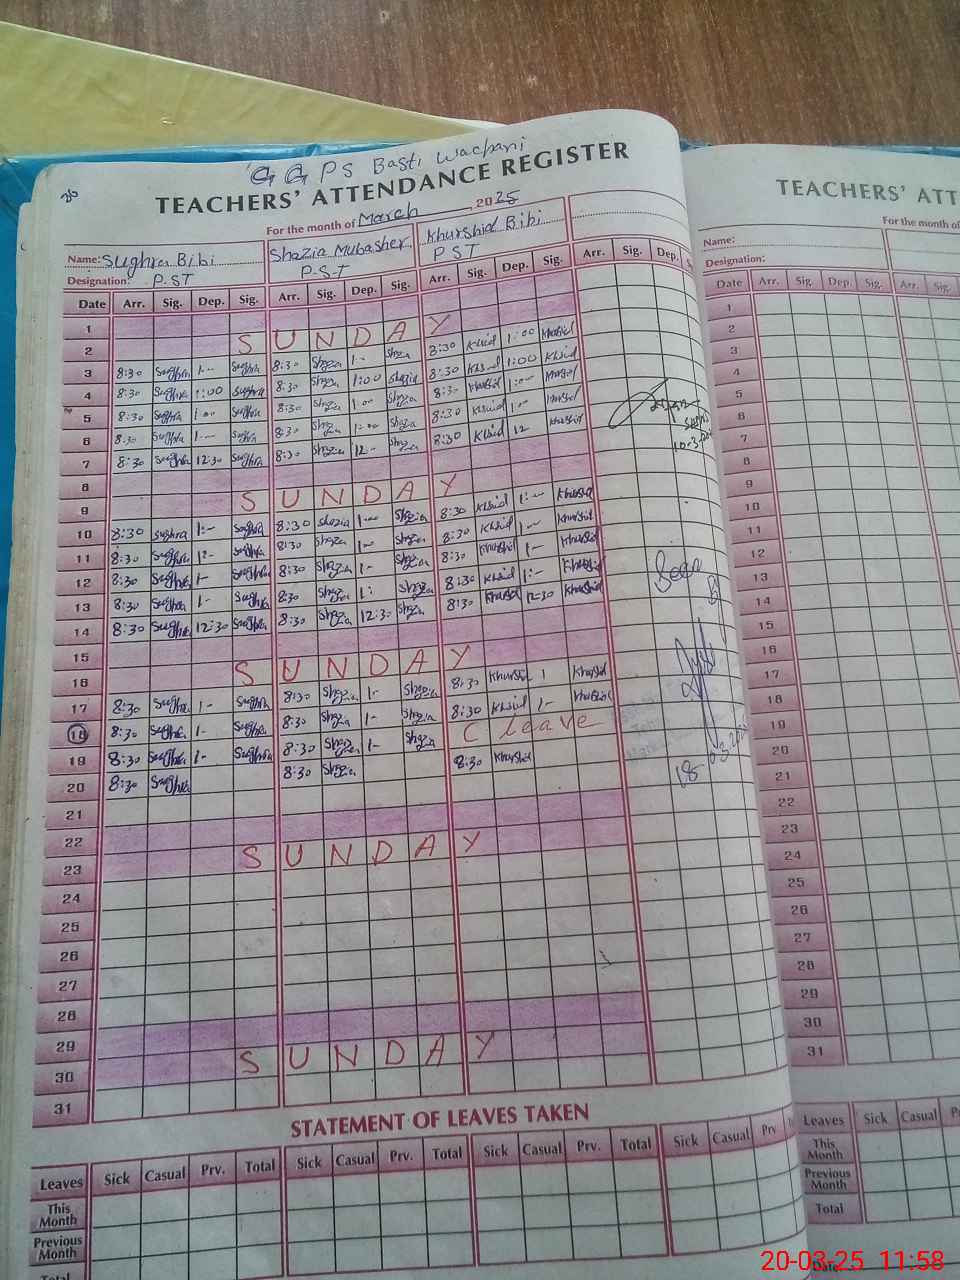 G G P S Basti Wachani
TEACHERS' ATTENDANCE REGISTER
For the month of March 2025
Name: Sughra Bibi Shazia Mubasher Khurshid Bibi
Designation: P.ST P.S.T P ST
Date Arr. Sig. Dep. Sig. Arr. Sig. Dep. Sig. Arr. Sig. Dep. Sig. Arr. Sig. Dep. S
1
2 S U N D A Y
3 8:30 Sughra 1-- Sughra 8:30 Shazia 1-- Shazia 8:30 1:00
4 8:30 Sughra 1:00 Sughra 8:30 Shazia 1:00 Shazia 8:30 1:00
5 8:30 Sughra 1:00 Sughra 8:30 Shazia 1:00 Shazia 8:30 Khurshid 1:00 Khurshid
6 8:30 Sughra 1-- Sughra 8:30 Shazia 1:00 Shazia 8:30 1:00 Khurshid
7 8:30 Sughra 12:30 Sughra 8:30 Shazia 12-- Shazia 8:30 12 Khurshid
8
9 S U N D A Y
10 8:30 Sughra 1:-- Sughra 8:30 Shazia 1-- Shazia 8:30 1:-- Khurshid
11 8:30 Sughra 1:- Sughra 8:30 Shazia 1-- Shazia 8:30 1-- Khurshid
12 8:30 Sughra 1- Sughra 8:30 Shazia 1- Shazia 8:30 Khurshid 1- Khurshid
13 8:30 Sughra 1- Sughra 8:30 Shazia 1: Shazia 8:30 1:- Khurshid
14 8:30 Sughra 12:30 Sughra 8:30 Shazia 12:30 Shazia 8:30 Khurshid 12:30 Khurshid
15
16 S U N D A Y
17 8:30 Sughra 1- Sughra 8:30 Shazia 1- Shazia 8:30 Khurshid 1 Khurshid
18 8:30 Sughra 1- Sughra 8:30 Shazia 1- Shazia 8:30 Khurshid 1- Khurshid
19 8:30 Sughra 1- Sughra 8:30 Shazia 1- Shazia C leave
20 8:30 Sughra 8:30 Shazia 8:30 Khurshid
21
22
23 S U N D A Y
24
25
26
27
28
29
30 S U N D A Y
31
Seen
STATEMENT OF LEAVES TAKEN
Leaves Sick Casual Prv. Total Sick Casual Prv. Total Sick Casual Prv. Total Sick Casual Prv
This Month
Previous Month
Total
TEACHERS' ATT
For the month of
Name:
Designation:
Date Arr. Sig. Dep. Sig. Arr. Sig.
1
2
3
4
5
6
7
8
9
10
11
12
13
14
15
16
17
18
19
20
21
22
23
24
25
26
27
28
29
30
31
Leaves Sick Casual
This Month
Previous Month
Total
Date
20-03-25 11:58